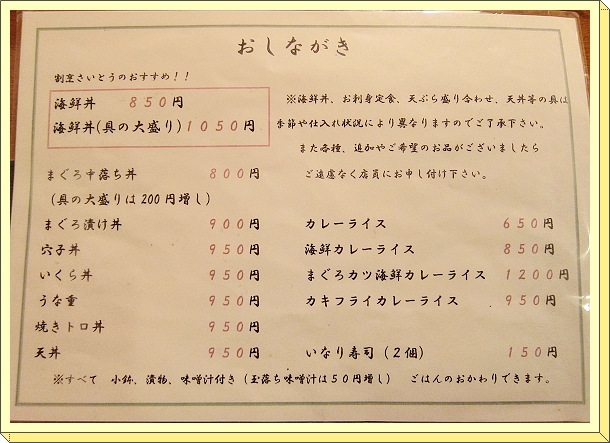 おしながき
割烹さいとうのおすすめ！！
海鮮丼 850円
海鮮丼(具の大盛り)1050円
※海鮮丼、お刺身定食、天ぷら盛り合わせ、天丼等の具は
季節や仕入れ状況により異なりますのでご了承下さい。
また各種、追加やご希望のお品がございましたら
ご遠慮なく店員にお申し付け下さい。
まぐろ中落ち丼 800円
(具の大盛りは200円増し)
まぐろ漬け丼 900円
穴子丼 950円
いくら丼 950円
うな重 950円
焼きトロ丼 950円
天丼 950円
カレーライス 650円
海鮮カレーライス 850円
まぐろカツ海鮮カレーライス 1200円
カキフライカレーライス 950円
いなり寿司(2個) 150円
※すべて 小鉢、漬物、味噌汁付き(玉落ち味噌汁は50円増し) ごはんのおかわりできます。